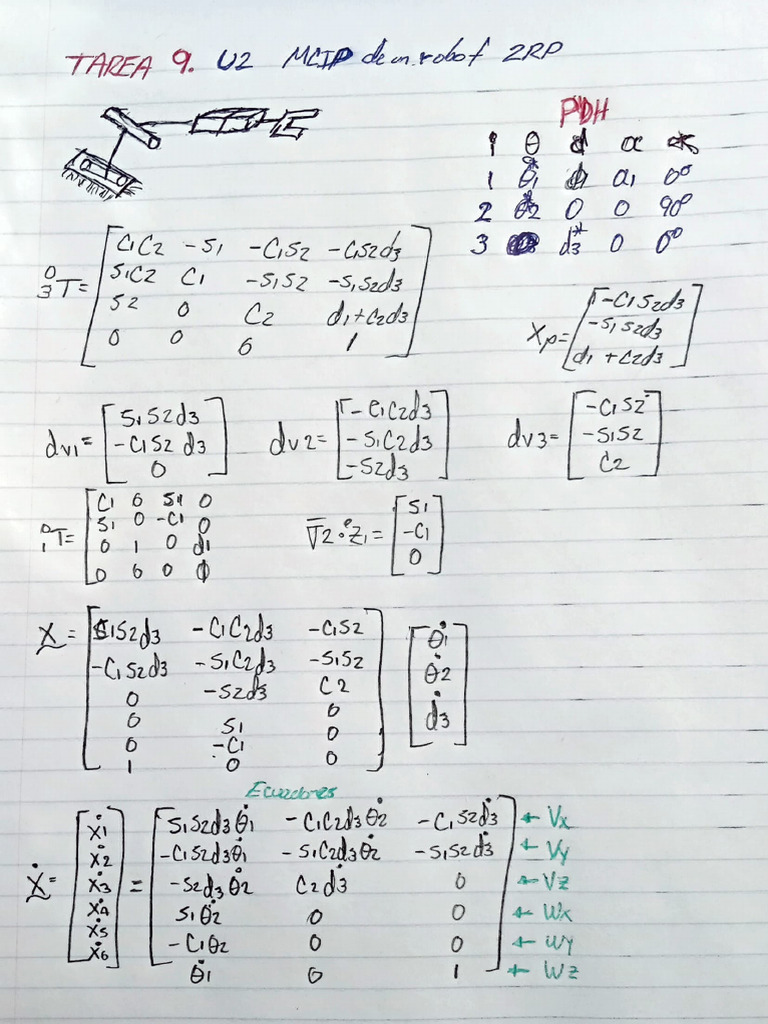 TAREA 9. U2 MCIP de un robot 2RP
PDH
1 θ d α
1 θ1* a1 0°
2 θ2* 0 0 90°
3 d3* 0 0°
0
3T= C1C2 -S1 -C1S2 -C1S2d3
S1C2 C1 -S1S2 -S1S2d3
S2 0 C2 d1+C2d3
0 0 0 1
Xp= -C1S2d3
-S1S2d3
d1+C2d3
dv1= S1S2d3
-C1S2d3
0
dv2= -C1C2d3
-S1C2d3
-S2d3
dv3= -C1S2
-S1S2
C2
0
1T= C1 0 S1 0
S1 0 -C1 0
0 1 0 d1
0 0 0 1
V2·Z1= S1
-C1
0
X= S1S2d3 -C1C2d3 -C1S2
-C1S2d3 -S1C2d3 -S1S2
0 -S2d3 C2
0 S1 0
0 -C1 0
1 0 0
θ̇1
θ̇2
ḋ3
Ecuadores
Ẋ= Ẋ1 = S1S2d3θ̇1 -C1C2d3θ̇2 -C1S2ḋ3 ← Vx
Ẋ2 -C1S2d3θ̇1 -S1C2d3θ̇2 -S1S2ḋ3 ← Vy
Ẋ3 -S2d3θ̇2 C2ḋ3 0 ← Vz
Ẋ4 S1θ̇2 0 0 ← Wx
Ẋ5 -C1θ2 0 0 ← Wy
Ẋ6 θ̇1 0 1 ← Wz